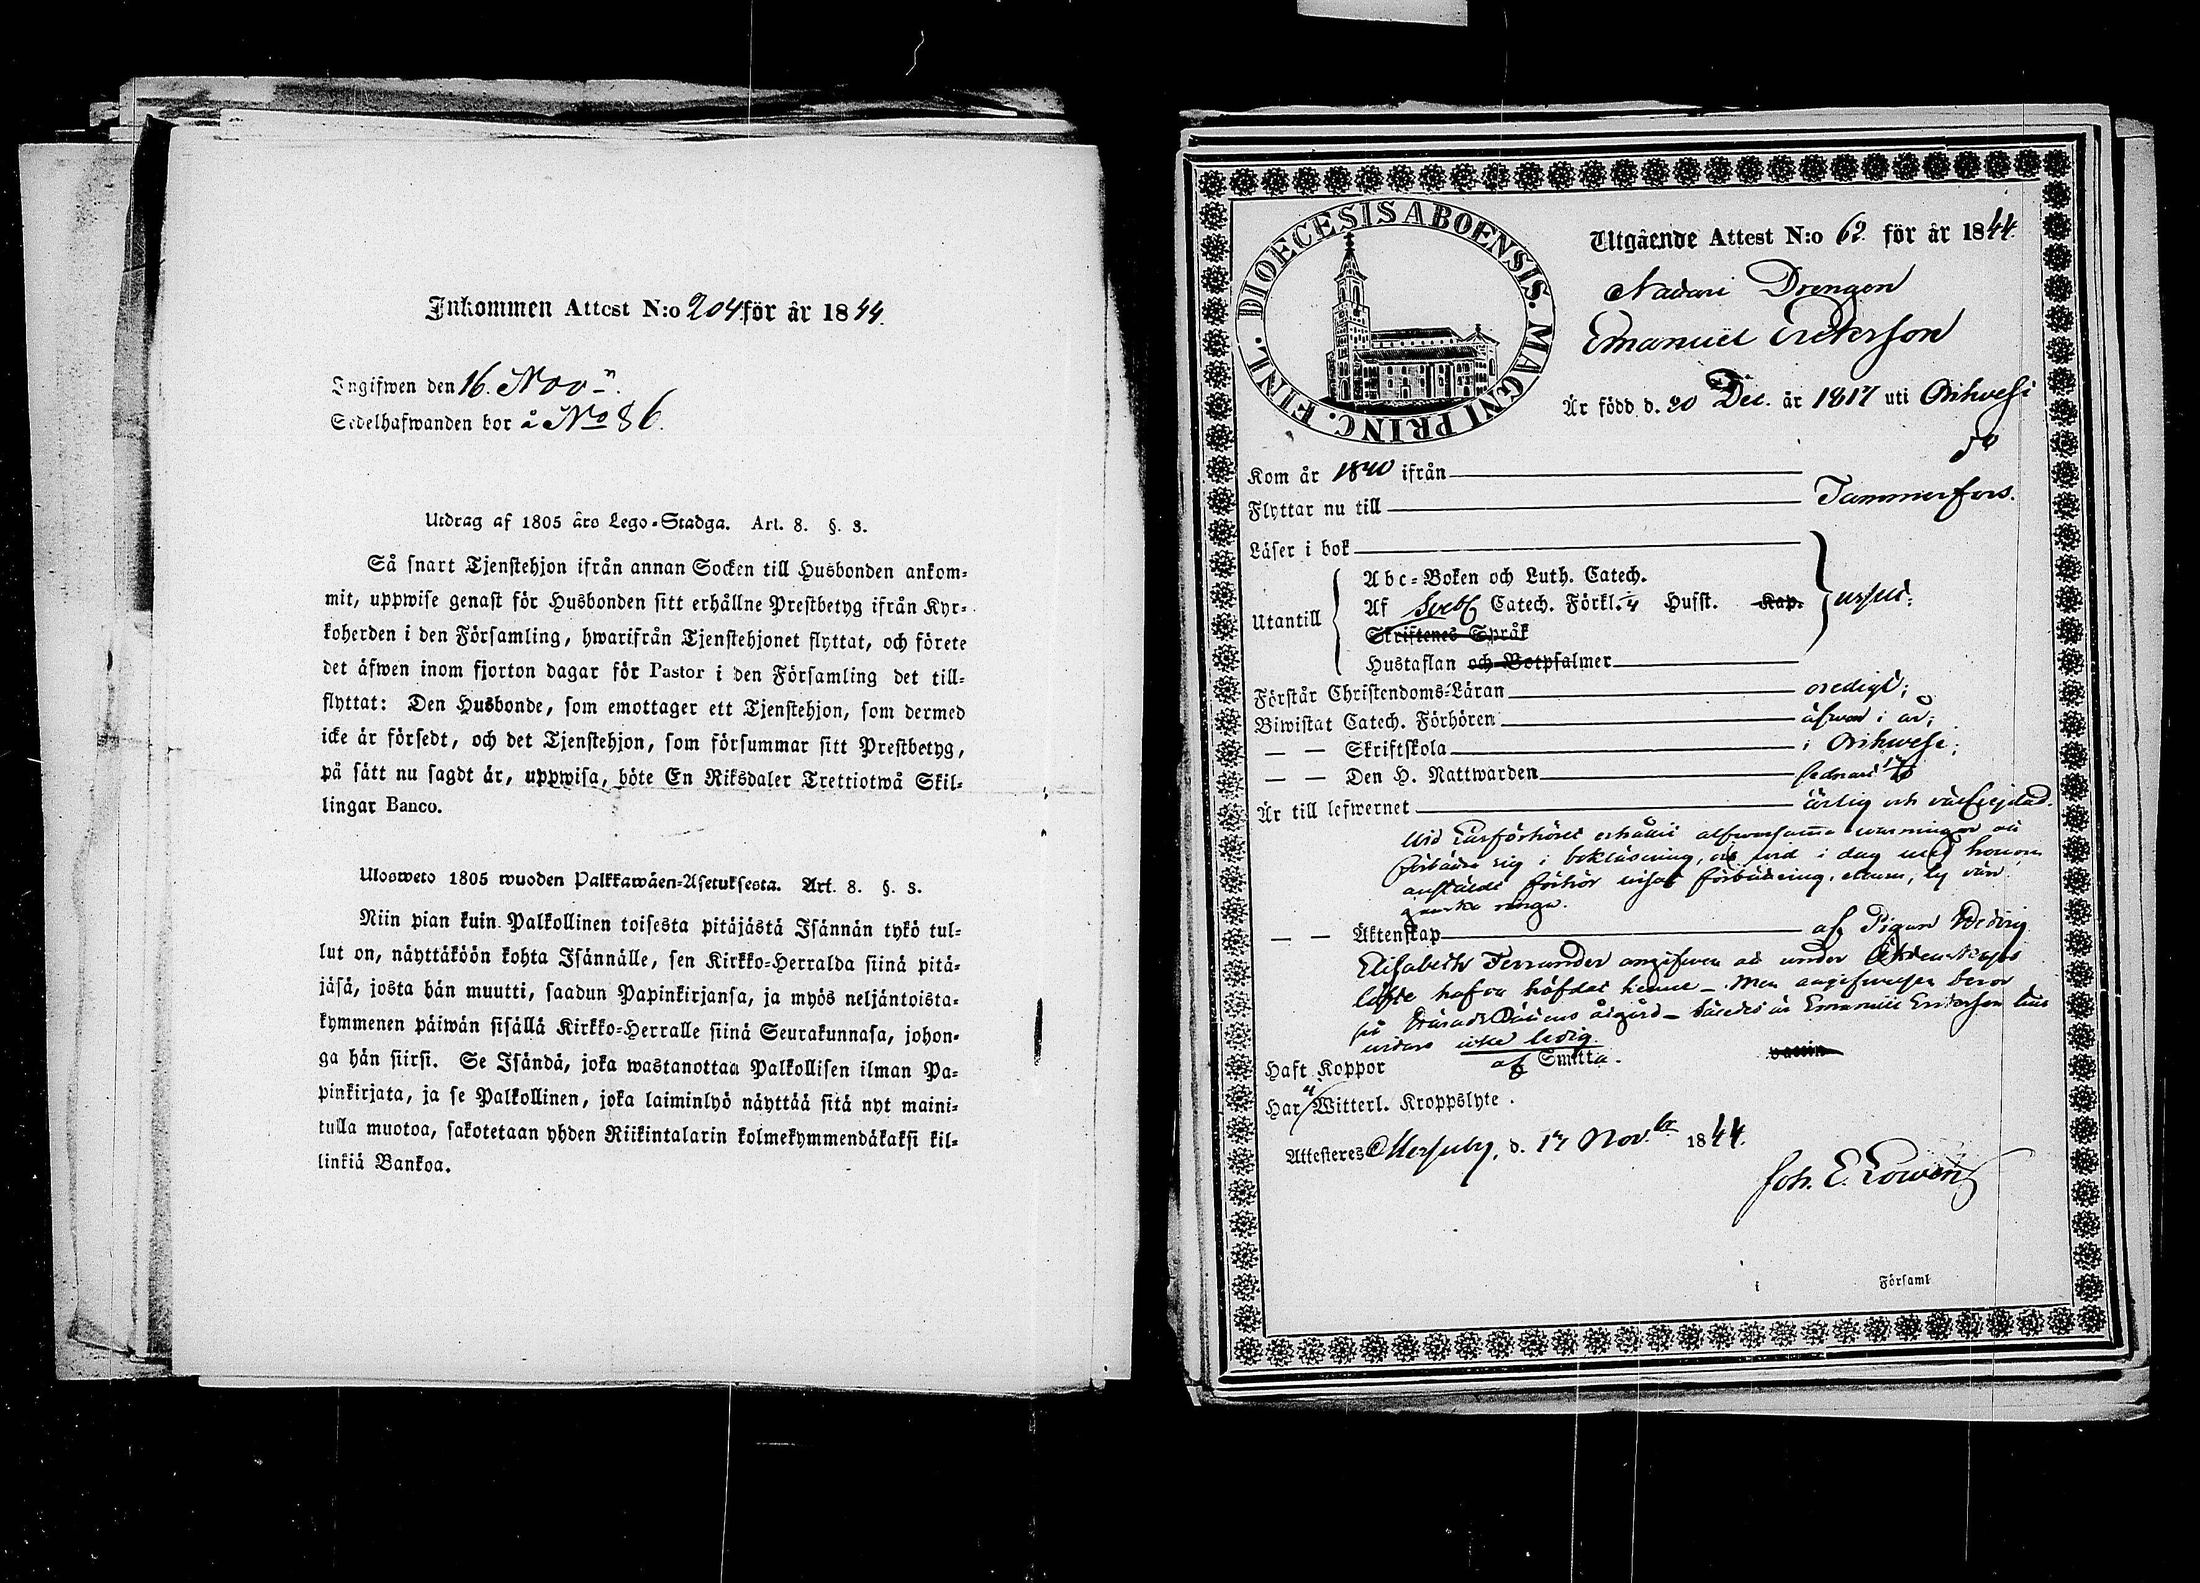 Inkommen Attest N:o 204 för år 1844.
Ingifwen den 16. Nov
Sedelhafwanden bor å No 86.
Utdrag af 1805 års Lego-Stadga. Art. 8. §. 3.
Så snart Tjenstehjon ifrån annan Socken till Husbonden ankom-
mit, uppwise genast för Husbonden sitt erhållne Prestbetyg ifrån Kyr-
koherden i den Församling, hwarifrån Tjenstehjonet flyttat, och förete
det äfwen inom fjorton dagar för Pastor i den Församling det till-
flyttat: Den Husbonde, som emottager ett Tjenstehjon, som dermed
icke är försedt, och det Tjenstehjon, som försummar sitt Prestbetyg,
på sätt nu sagdt är, uppwisa, böte En Riksdaler Trettiotwå Skil-
lingar Banco.
Ulosweto 1805 wuoden Palkkawäen-Asetuksesta. Art. 8. §. 3.
Niin pian kuin Palkollinen toisesta pitäjästä Isännän tykö tul-
lut on, näyttäköön kohta Isännälle, sen Kirkko-Herralda siinä pitä-
jäsä, josta hän muutti, saadun Papinkirjansa, ja myös neljäntoista-
kymmenen päiwän sisällä Kirkko-Herralle siinä Seurakunnasa, johon-
ga hän siirsi. Se Isändä, joka wastanottaa Palkollisen ilman Pa-
pinkirjata, ja se Palkollinen, joka laiminlyö näyttää sitä nyt maini-
tulla muotoa, sakotetaan yhden Riikintalarin kolmekymmendäkaksi kil-
linkiä Bankoa.
DIOECESIS ABOENSIS. MAGNI PRINC. FINL.
Utgående Attest N:o 62 för år 1844.
Drengen
Emanuel Erickson
Är född d. 20 Dec. år 1817 uti Orihwesi
Kom år 1840 ifrån
Flyttar nu till Tammerfors.
Läser i bok
Utantill
Abc-Boken och Luth. Catech.
Af Sveb Catech. Förkl. 4 Hufst. Kap.
Skriftenes Språk
Hustaflan och Botpsalmer
Förstår Christendoms-Läran oredigt;
Biwistat Catech. Förhören äfwen i år;
— — Skriftskola i Orihwesi;
— — Den H. Nattwarden sednast
Är till lefwernet ärlig och välfrejdad.
Wid Läsförhöret erhållit alfwarsamma warningar att
förbättra sig i bokläsning, och wid i dag med honom
anstäldt förhör wisat förbättring, ehuru, ty värr
ganska ringa.
— — Äktenskap af Pigan Hedvig
Elisabeth Ferrander angifwen att under Äktenskaps
löfte hafva häfdat henne – Men angifwelsen beror
på Domareåtgärd – således är Emanuel Erickson tills
vidare icke ledig.
Haft Koppor af Smitta.
Har Witterl. Kroppslyte.
Attesteras Messuby, d. 17 Nov.br 1844.
Joh. E. Lowén
i Församl